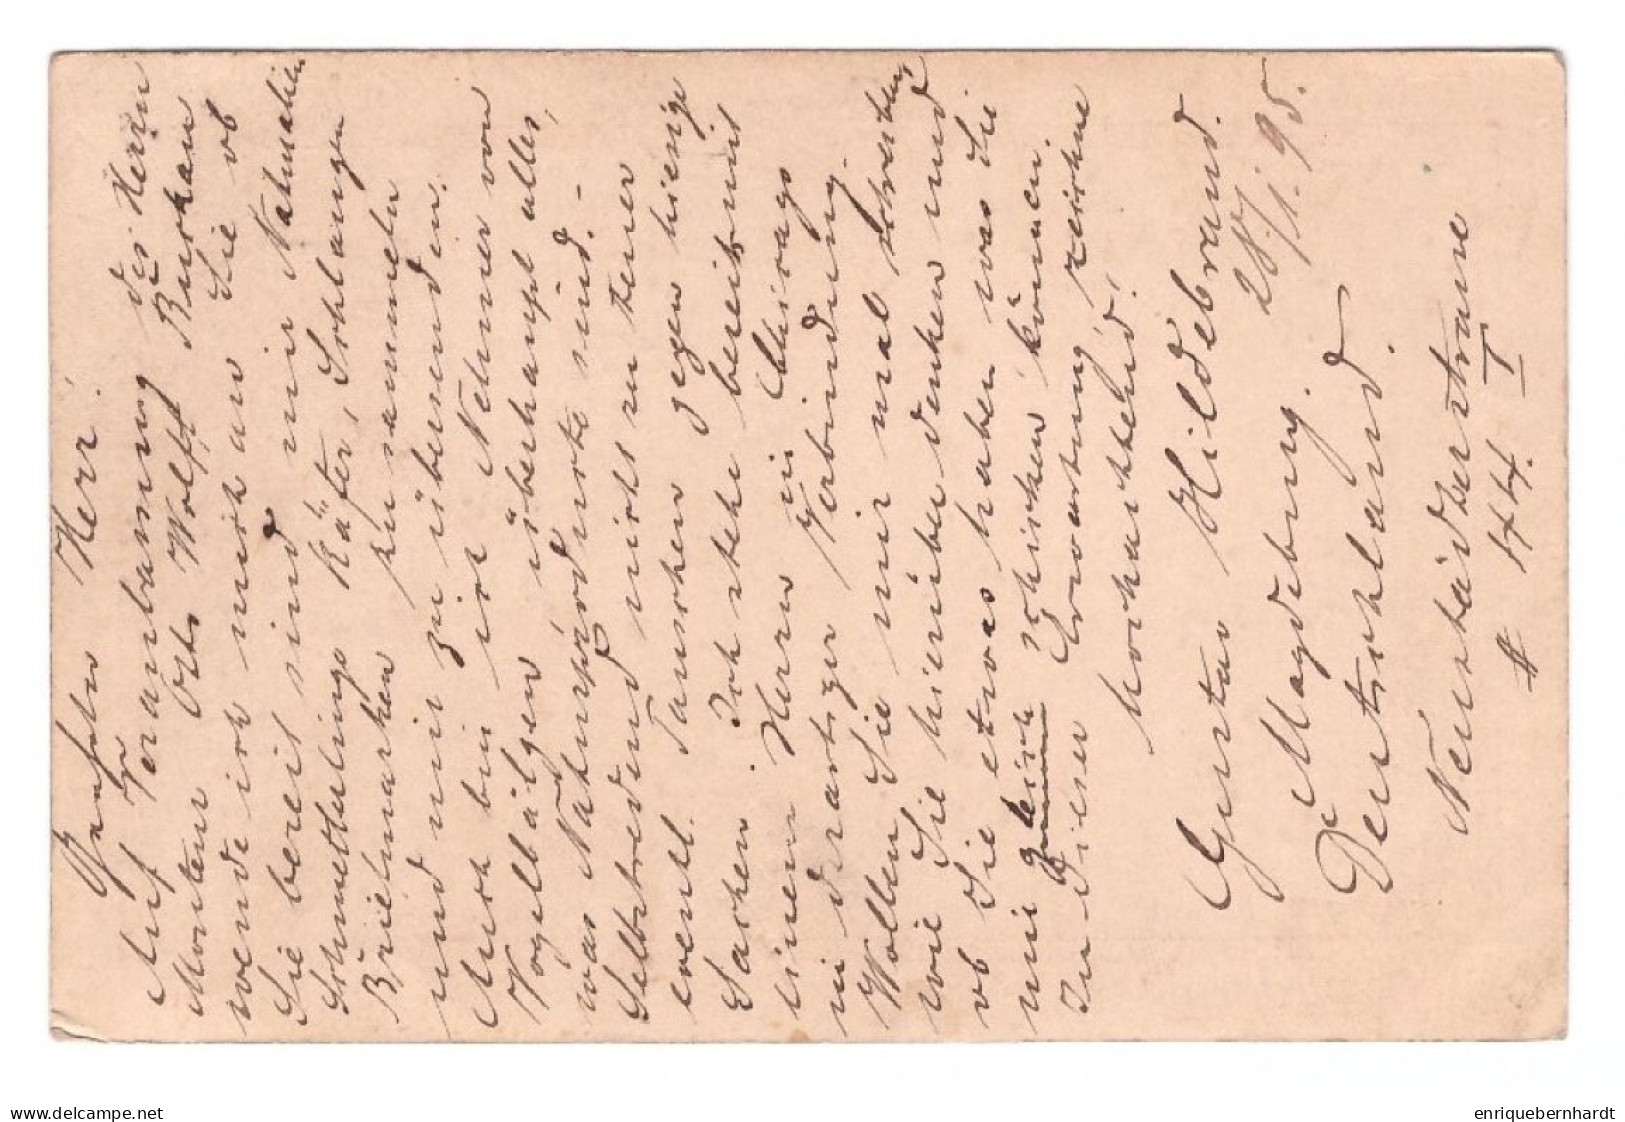 Geehrter Herr.
Auf Veranlassung des Herrn
Monteur Otto Wolff Buckau
wende ich mich an Sie ob
Sie bereit sind mir Nahmahlen
Schmetterlinge Käfer, Schlangen
Briefmarken zu sammeln
und mir zu übersenden.
Auch bin ich Nehmer von
Vogelbälgen überhaupt alles,
was Naturprodukte sind. -
Selbstredend nicht zu teuer
eventl. Tauschen gegen hiesige
Sachen. Ich stehe bereits mit
einem Herrn in Chicago
in derartiger Verbindung.
Wollen Sie mir mal schreiben,
wie Sie hierüber denken und
ob Sie etwas haben was Sie
mir gleich schicken können.
In dieser Erwartung zeichne
hochachtend!
Gustav Hildebrand.
Magdeburg. 28/1.95.
Deutschland.
Neustädterstrasse
# 44 I
www.delcampe.net
enriquebernhardt